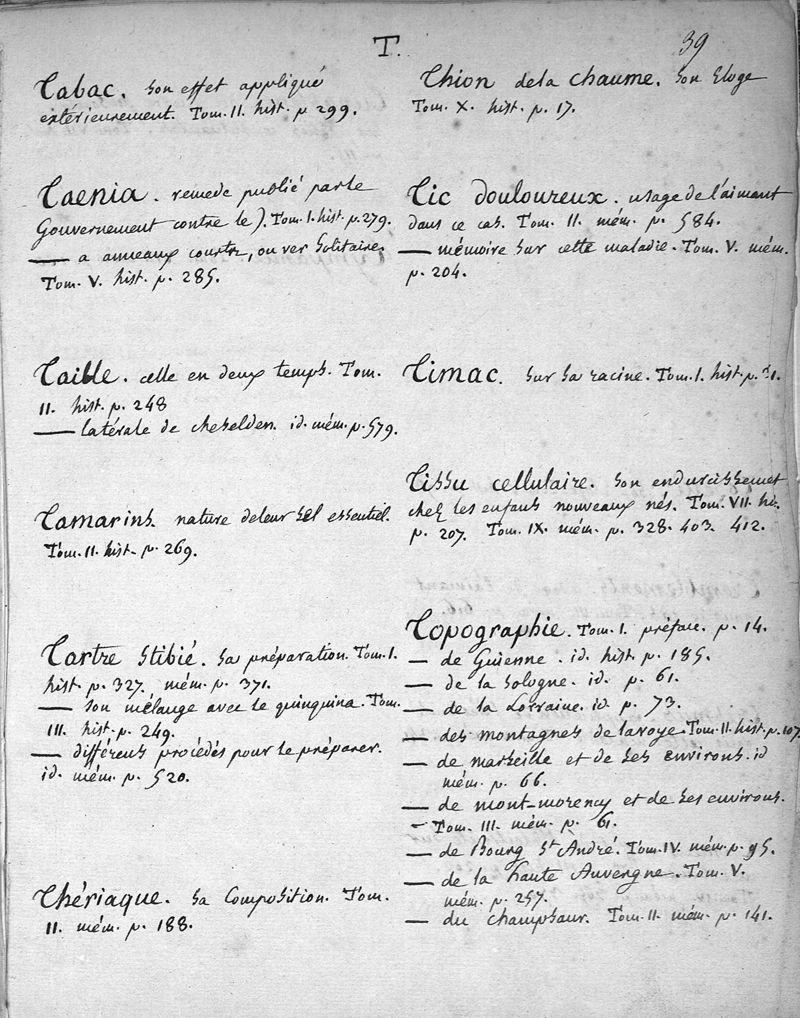 T.
39
Tabac. son effet appliqué
extérieurement. Tom. II. hist. p. 299.
Taenia. remede publié parle
Gouvernement contre le). Tom. I. hist. p. 279.
— a anneaux courts, ou ver Solitaire.
Tom. V. hist. p. 285.
Taille. celle en deux temps. Tom.
II. hist. p. 248
— latérale de cheselden. id. mém. p. 579.
Tamarins. nature deleur sel essentiel.
Tom. II. hist. p. 269.
Tartre Stibié. sa préparation. Tom. I.
hist. p. 327. mém. p. 371.
— son mélange avec le quinquina. Tom.
III. hist. p. 249.
— différens procédés pour le préparer.
id. mém. p. 520.
Thériaque. sa Composition. Tom.
II. mém. p. 188.
Thion dela chaume. son Eloge
Tom. X. hist. p. 17.
Tic douloureux. usage de l'aimant
dans ce cas. Tom. II. mém. p. 584.
— mémoire sur cette maladie. Tom. V. mém.
p. 204.
Timac. sur sa racine. Tom. I. hist. p.
Tissu cellulaire. son endurcissemet
chez les enfants nouveaux nés. Tom. VII. his.
p. 207. Tom. IX. mém. p. 328. 403. 412.
Topographie. Tom. I. préface. p. 14.
— de Guienne. id. hist. p. 185.
— de la Sologne. id. p. 61.
— de la Lorraine. id. p. 73.
— des montagnes de lavoye. Tom. II. hist. p. 107
— de marseille et de ses environs. id
mém. p. 66.
— de mont-morency et de ses environs.
- Tom. III. mém. p. 61.
— de Bourg St André. Tom. IV. mém. p. 95.
— de la haute Auvergne. Tom. V.
mém. p. 257.
— du champsaur. Tom. II. mém. p. 141.